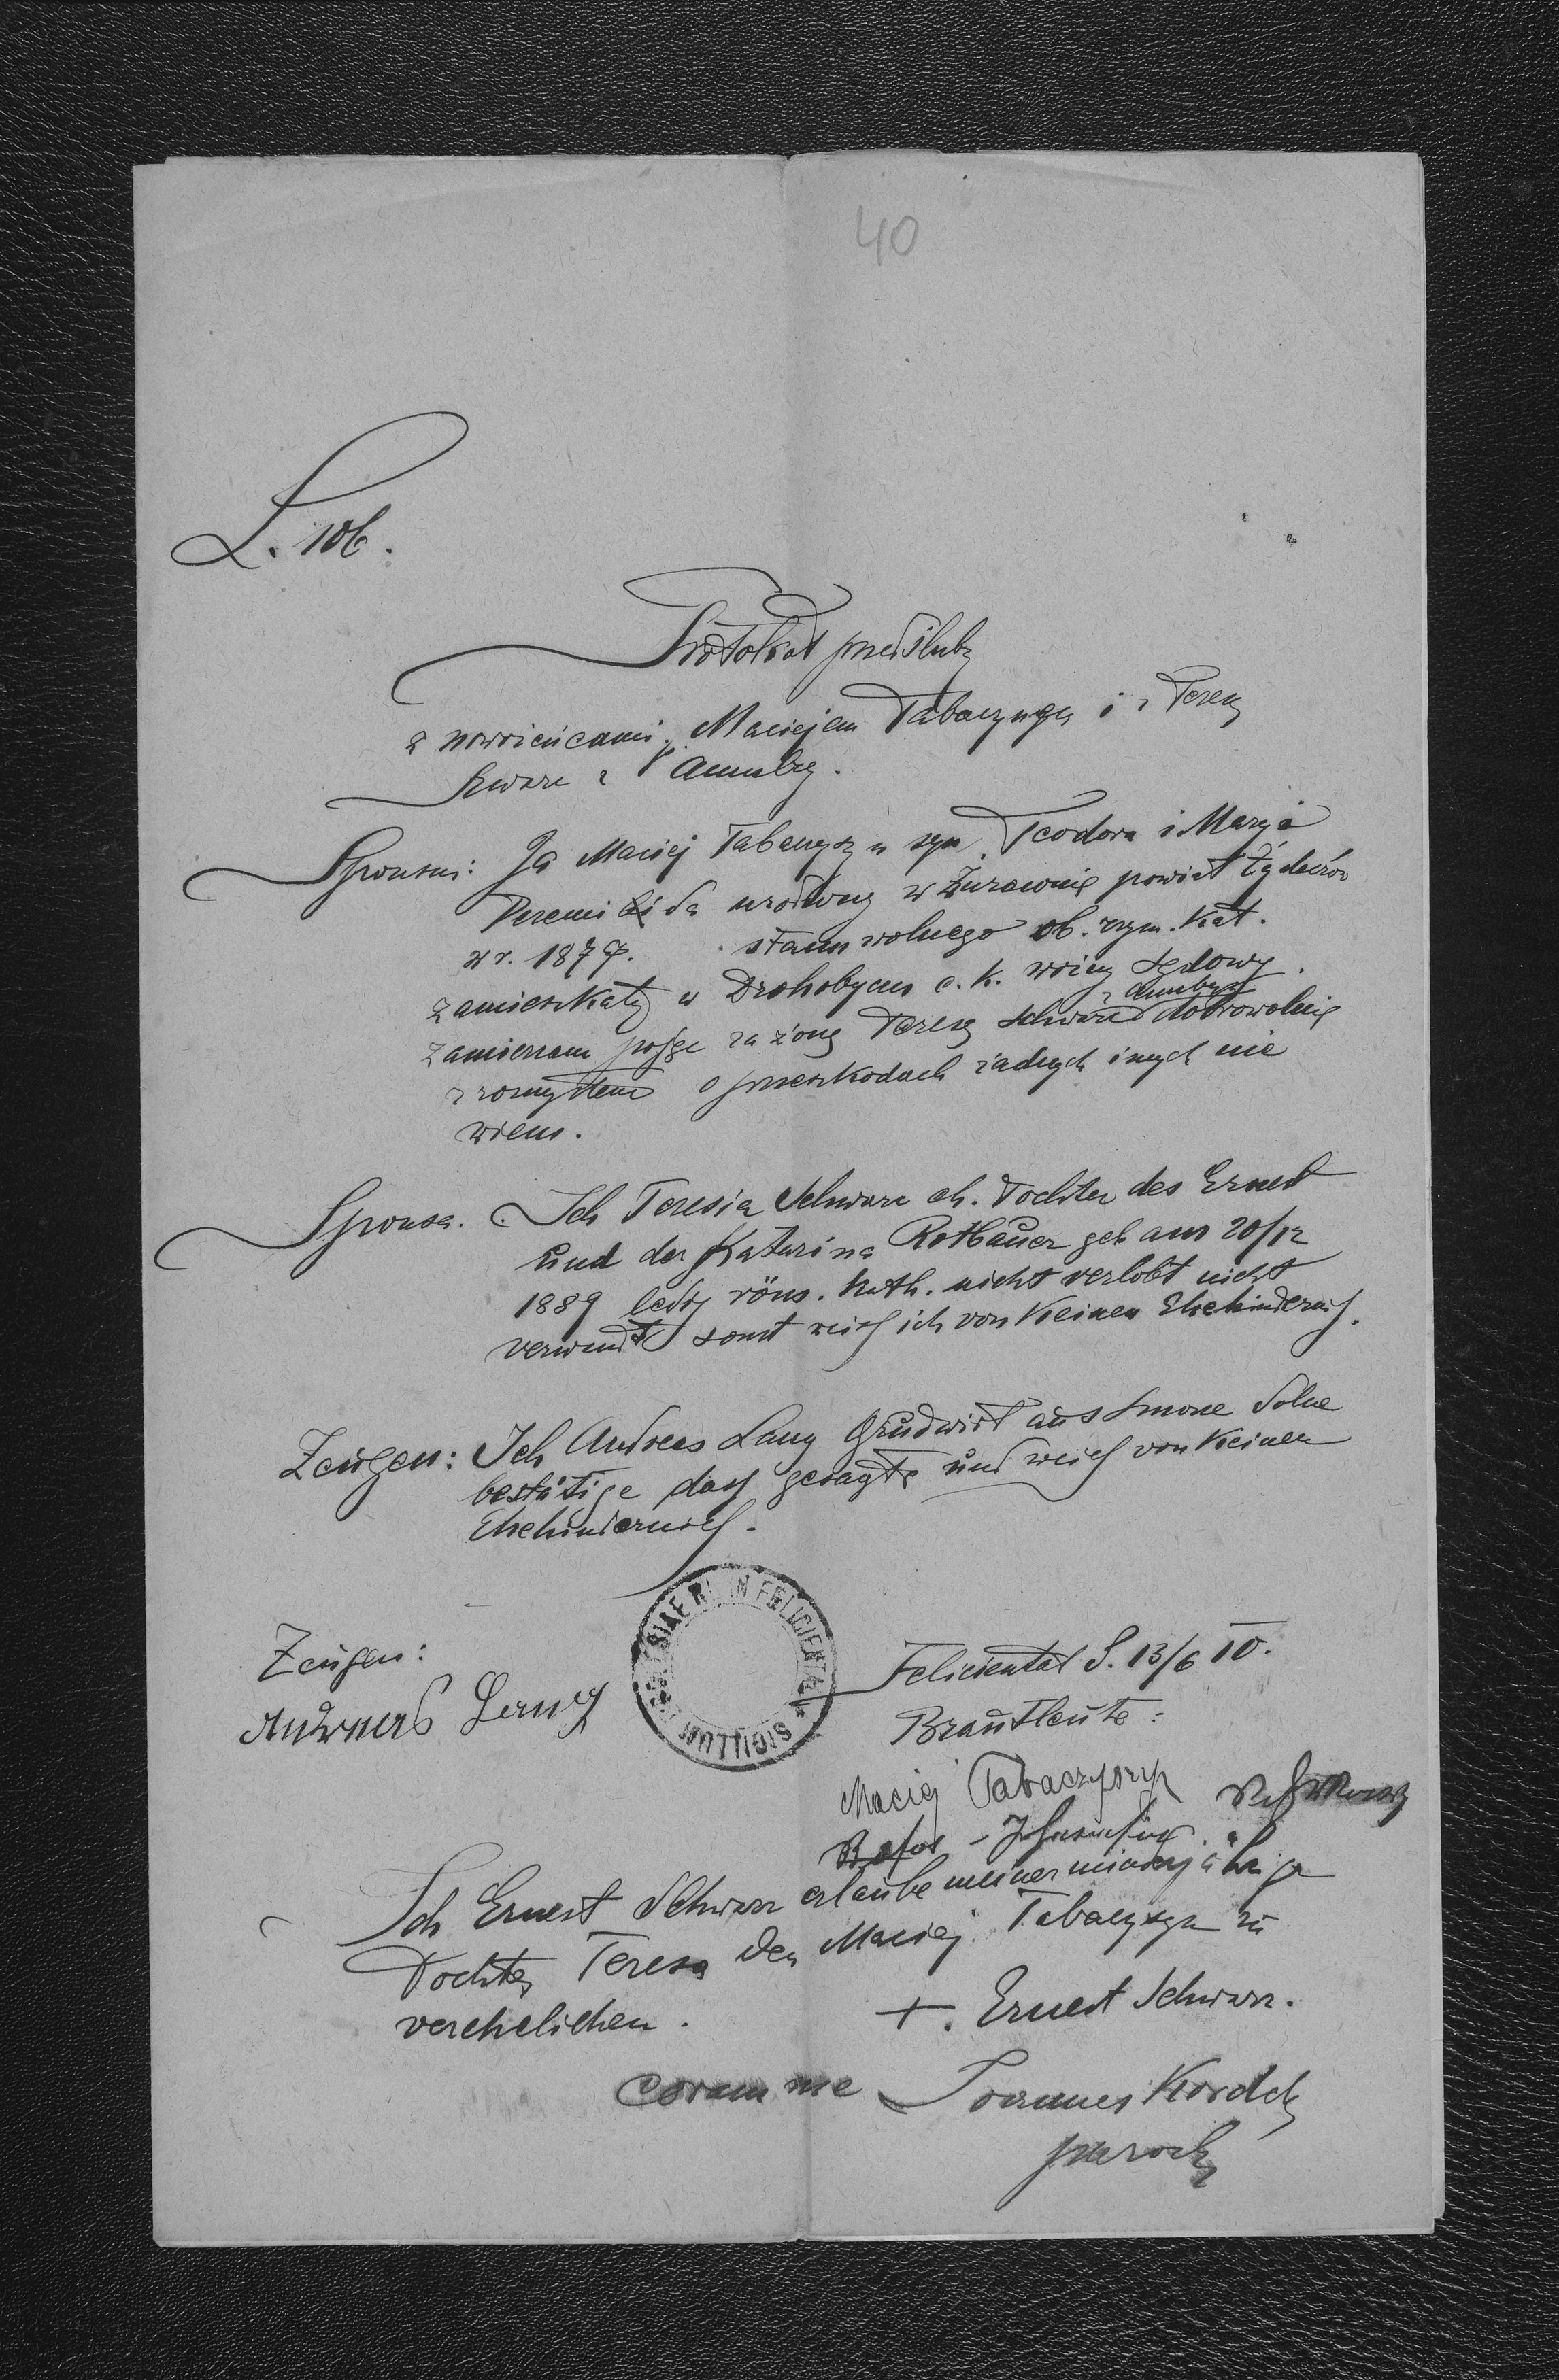 40
L. 106.
Protokół przedślubny
z nowożeńcami: Maciejem Tabaczyszyn i z Teresą
Szwarz z Annabrg.
Sponsus: Ja Maciej Tabaczyszyn syn Teodora i Maryi
urodzony w Żurawnie powiat Żydaczów
w r. 1879. stanu wolnego ob. rzym. kat.
zamieszkały w Drohobyczu c. k. woźny sądowy
z Annabrg
zamierzam pojąć za żonę Teresę Schwarz dobrowolnie
z rozmysłem o przeszkodach żadnych inych nie
wiem.
Sponsa. Ich Teresia Schwarz eh. Tochter des Ernest
und der Katarina Rothauer geb am 20/12
1889 ledig röm. kath. nicht verlobt nicht
verwandt sonst weiß ich von keinen Ehehinderniß.
Zeugen: Ich Andreas Lang Grundwirt aus Smorze Dolne
bestätige daß gesagte und weiß von keinen
Ehehinderniß.
SIGILLUM ECCLESIAE R. L. IN FELICIENTAL
Zeugen:
Andreas Lang
Feliciental S. 13/6 10.
Brautleute:
Maciej Tabaczyszyn
Ich Ernest Schwarz erlaube meiner minderjährige
Tochter Teresa den Maciej Tabaczyszyn zu
verehelichen.
+. Ernest Schwarz.
coram me Joannes Kordek
parochus